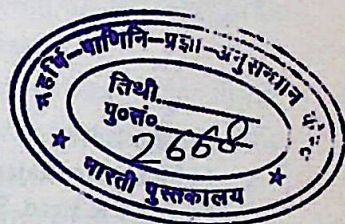 महर्षि-पाणिनि-प्रज्ञा-अनुसन्धान
तिथी
पु०सं०
2668
भारती पुस्तकालय